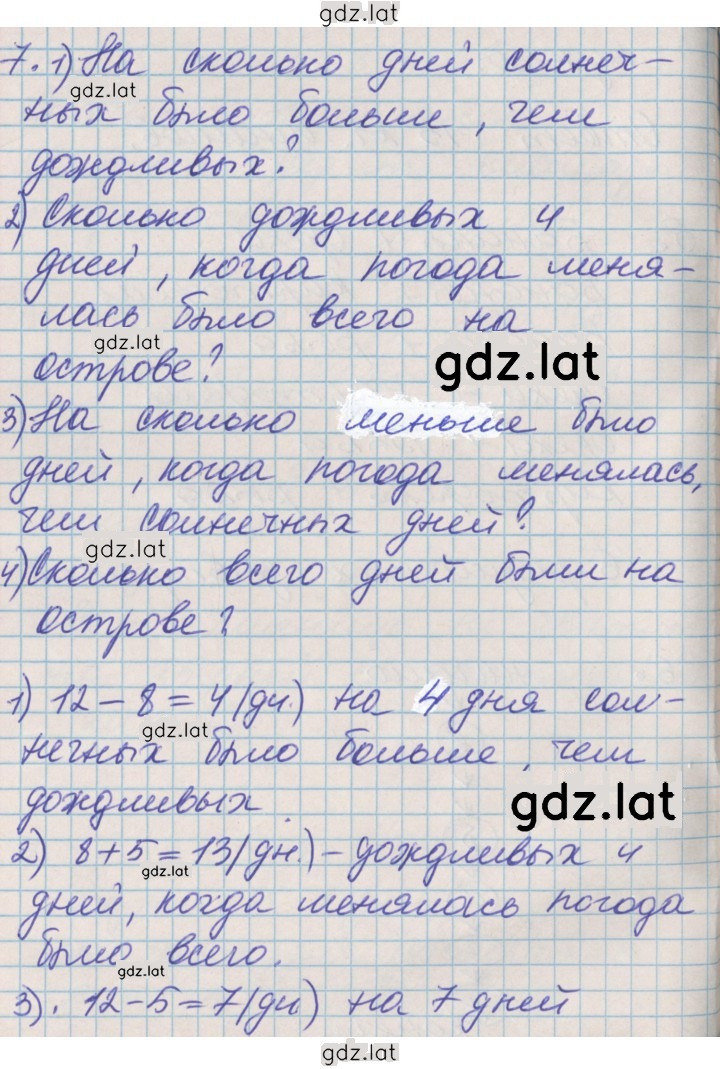 gdz.lat
7. 1) На сколько дней солнеч-
gdz.lat
ных было больше, чем
дождливых?
2) Сколько дождливых и
дней, когда погода меня-
лась было всего на
gdz.lat
острове?
gdz.lat
3) На сколько меньше было
дней, когда погода менялась,
чем солнечных дней?
gdz.lat
4) Сколько всего дней были на
острове?
1) 12 - 8 = 4 (дн.) на 4 дня сол-
gdz.lat
нечных было больше, чем
дождливых.
gdz.lat
2) 8 + 5 = 13 (дн.) - дождливых и
gdz.lat
дней, когда менялась погода
было всего.
gdz.lat
3). 12 - 5 = 7 (дн) на 7 дней
gdz.lat